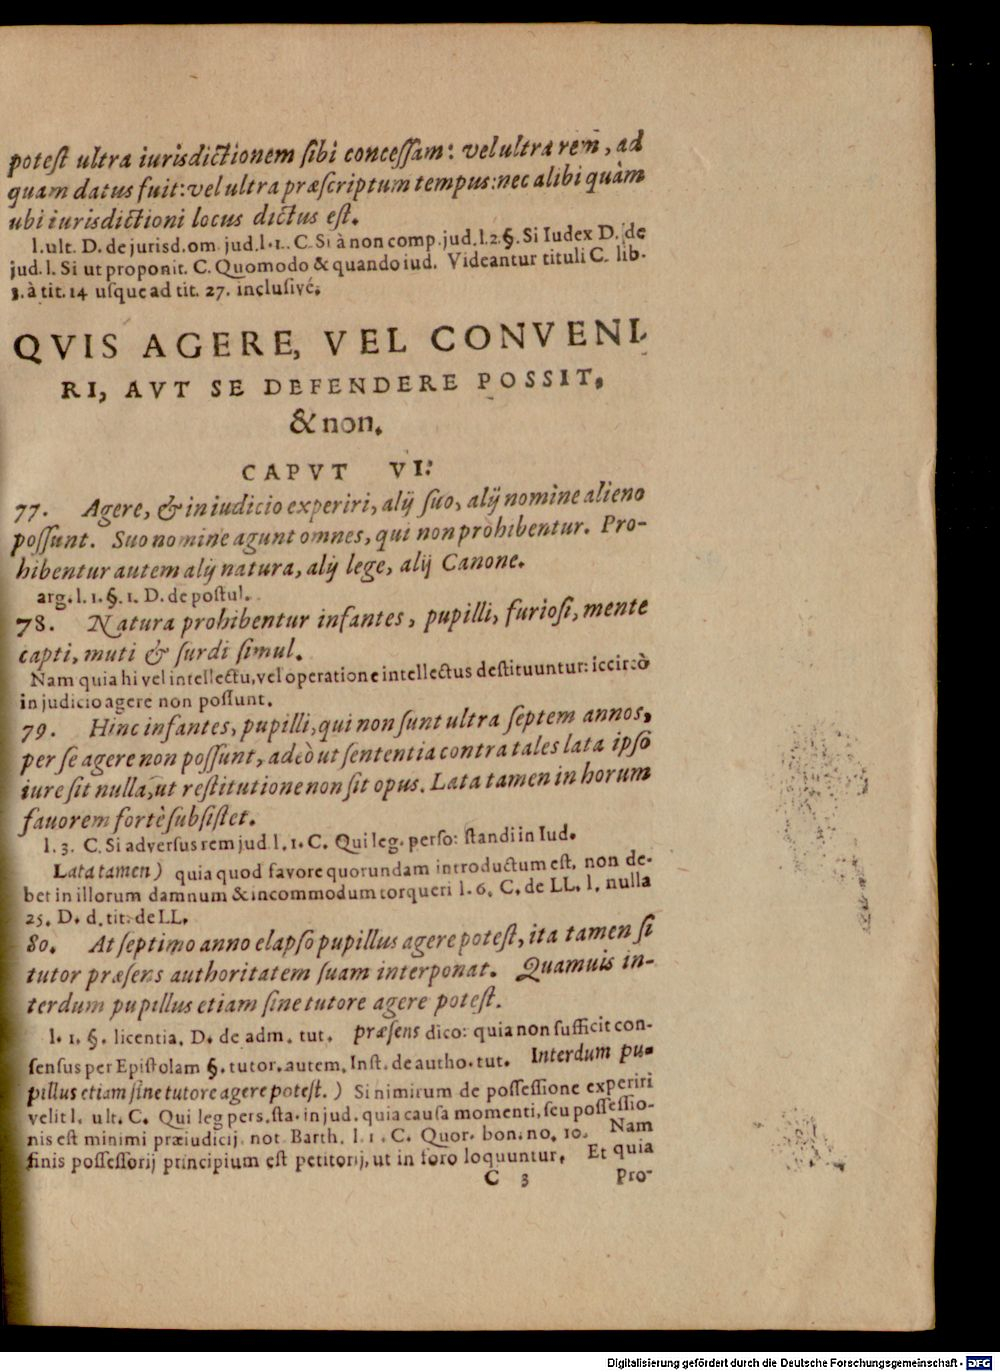 potest ultra iurisdictionem sibi concessam: vel ultra rem, ad
quam datus fuit: vel ultra præscriptum tempus: nec alibi quàm
ubi iurisdictioni locus dictus est.
l. ult. D. de jurisd. om. jud. l. 1. C. Si à non comp. jud. l. 2. §. Si Iudex D. de
jud. l. Si ut proponit. C. Quomodo & quando iud. Videantur tituli C. lib.
3. à tit. 14 usque ad tit. 27. inclusivé.
QVIS AGERE, VEL CONVENI-
RI, AVT SE DEFENDERE POSSIT,
& non.
CAPVT VI.
77. Agere, & in iudicio experiri, alij suo, alij nomine alieno
possunt. Suo nomine agunt omnes, qui non prohibentur. Pro-
hibentur autem alij natura, alij lege, alij Canone.
arg. l. 1. §. 1. D. de postul.
78. Natura prohibentur infantes, pupilli, furiosi, mente
capti, muti & surdi simul.
Nam quia hi vel intellectu, vel operatione intellectus destituuntur: iccircò
in judicio agere non possunt.
79. Hinc infantes, pupilli, qui non sunt ultra septem annos,
per se agere non possunt, adeò ut sententia contra tales lata ipso
iure sit nulla, ut restitutione non sit opus. Lata tamen in horum
favorem fortè subsistet.
l. 3. C. Si adversus rem jud. l. 1. C. Qui leg. perso: standi in Iud.
Lata tamen) quia quod favore quorundam introductum est, non de-
bet in illorum damnum & incommodum torqueri l. 6. C. de LL. l. nulla
25. D. d. tit. de LL.
80. At septimo anno elapso pupillus agere potest, ita tamen si
tutor præsens authoritatem suam interponat. Quamuis in-
terdum pupillus etiam sine tutore agere potest.
l. 1. §. licentia. D. de adm. tut. præsens dico: quia non sufficit con-
sensus per Epistolam §. tutor. autem. Inst. de autho. tut. Interdum pu-
pillus etiam sine tutore agere potest.) Si nimirum de possessione experiri
velit l. ult. C. Qui leg pers. sta. in jud. quia causa momenti, seu possessio-
nis est minimi præiudicij. not. Barth. l. 1. C. Quor. bon. no. 10. Nam
finis possessorij principium est petitorij, ut in foro loquuntur. Et quia
C 3 Pro-
Digitalisierung gefördert durch die Deutsche Forschungsgemeinschaft - DFG